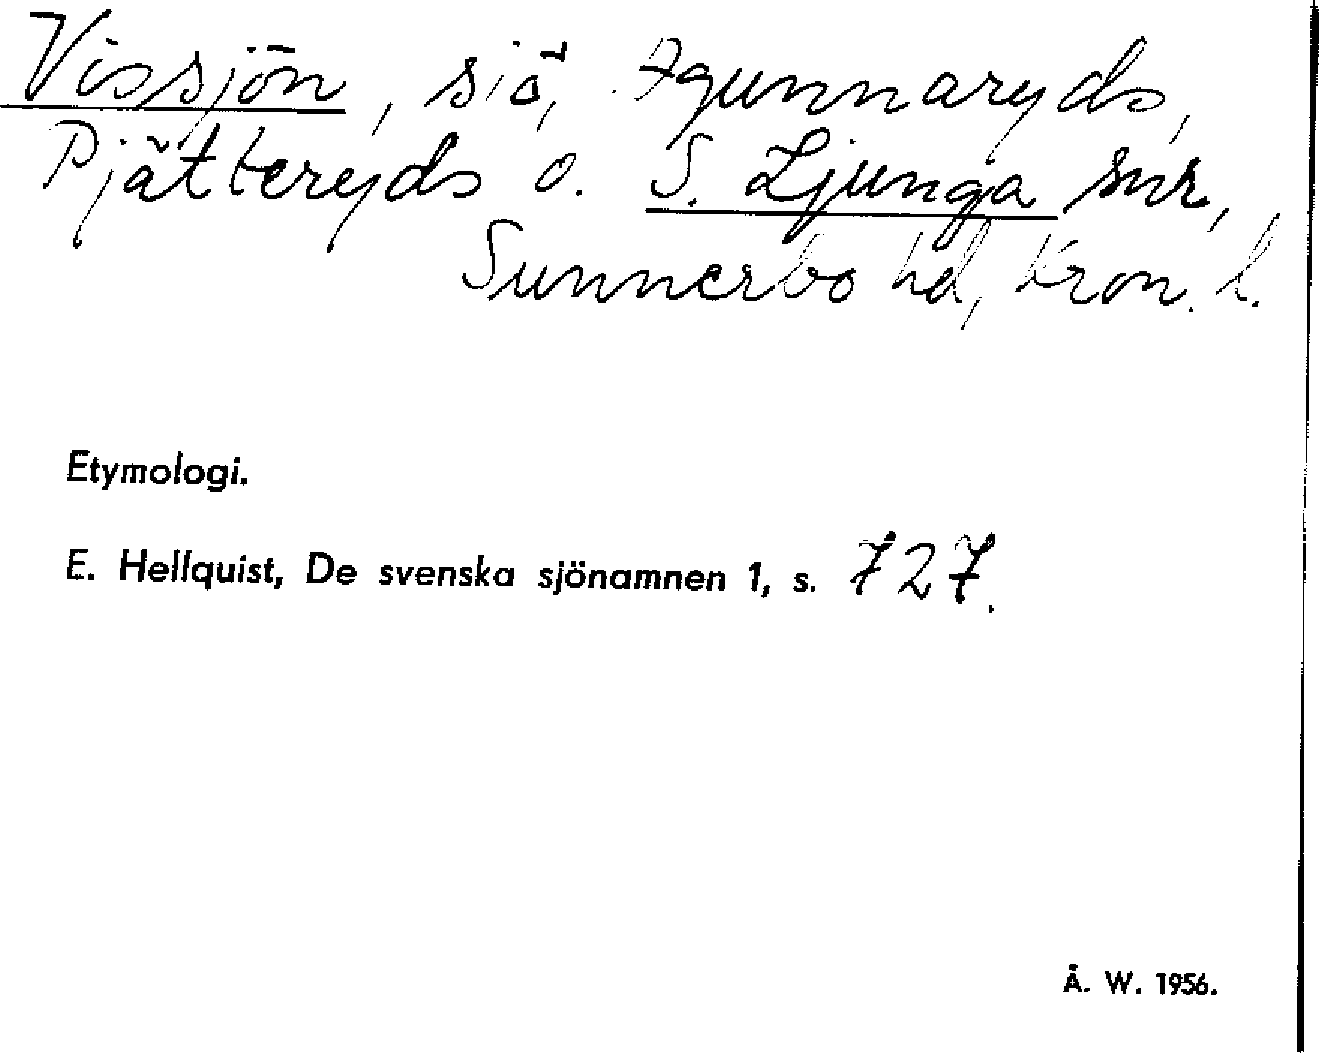 Vissjön, sjö, Agunnaryds,
Pjätteryds o. S. Ljunga snr,
Sunnerbo hd, Kron. l.
Etymologi.
E. Hellquist, De svenska sjönamnen 1, s. 727.
Å. W. 1956.